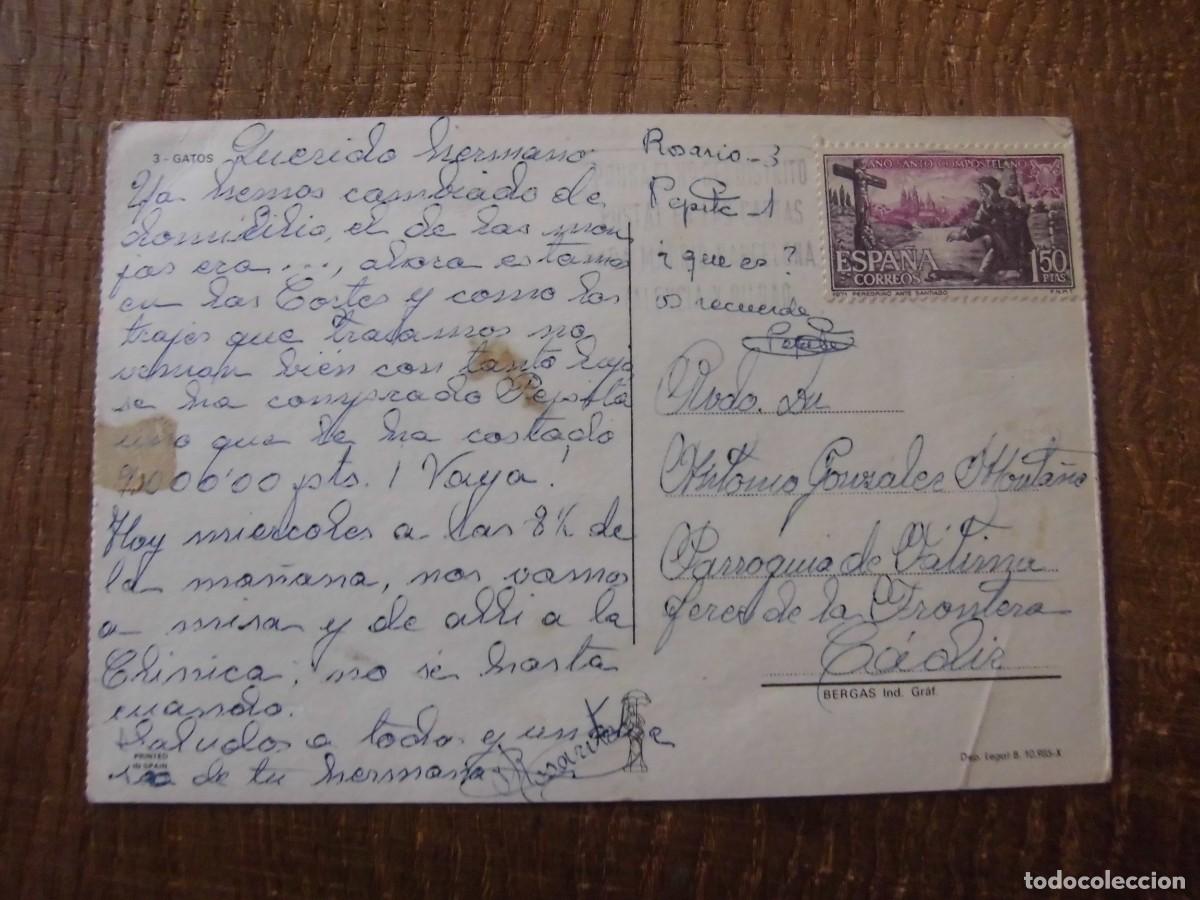 3 - GATOS
Querido hermano:
Ya hemos cambiado de
domicilio, el de las mon
jas era ..., ahora estamos
en las Cortes y como los
trajes que tratamos no
venian bién con tanto lujo
se ha comprado Pepita
uno que le ha costado
006'00 pts. ¡ Vaya!
Hoy miercoles a las 8½ de
la mañana, nos vamos
a misa y de alli a la
Clinica; no sé hasta
cuando.
Saludos a todos y un
de tu hermana
Rosarito
PRINTED
IN SPAIN
Rosario - 3
Pepita - 1
¿ que es?
os recuerda
Pepita
AÑO SANTO COMPOSTELANO
ESPAÑA
CORREOS
1'50
PTAS
1971 PEREGRINO ANTE SANTIAGO
F.N.M.T.
Rvdo. Sr.
Antonio Gonzalez Montaño
Parroquia de Fátima
Jerez de la Frontera
Cádiz
BERGAS Ind. Gráf.
Dep. Legal B. 10.985-X
todocoleccion